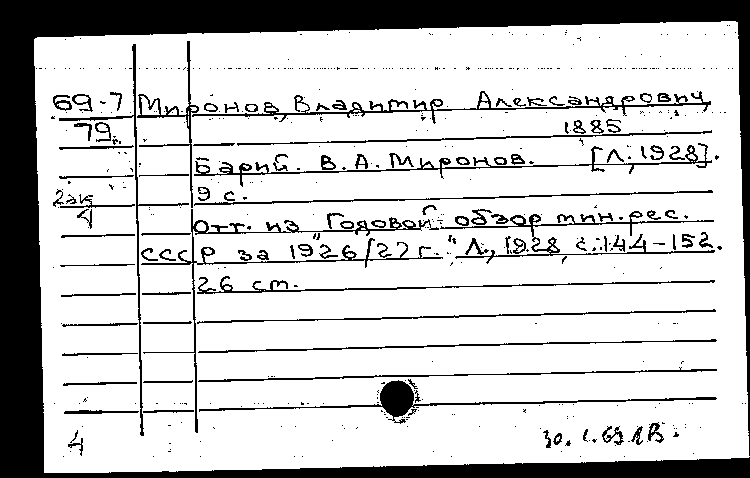 69-7 Миронов, Владимир Александрович,
79 1885
Барий. В.А. Миронов. [Л., 1928].
2 эк 9 с.
4 Отт. из "Годовой обзор мин. рес.
СССР за 1926/27 г." Л., 1928, с. 144-152.
26 cm.
4 30.1.69